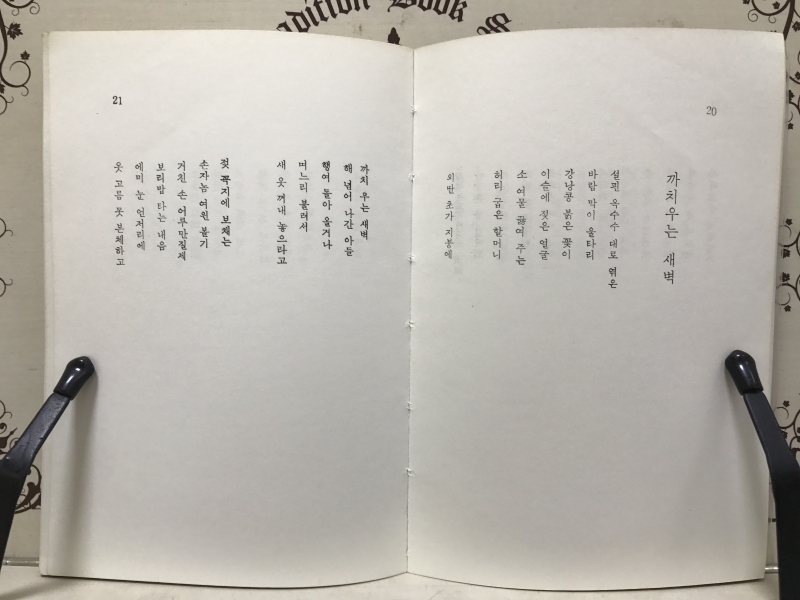 adition Book S
20
까치우는 새벽
설핀 옥수수 대로 엮은
바람 막이 울타리
강낭콩 붉은 꽃이
이슬에 젖은 얼굴
소 여물 끓여 주는
허리 굽은 할머니
외딴 초가 지붕에
21
까치 우는 새벽
해 넘어 나간 아들
행여 돌아 올거나
며느리 불러서
새 옷 꺼내 놓으라고
젖 꼭지에 보채는
손자놈 여윈 볼기
거친 손 어루만질제
보리밥 타는 내음
에미 눈 언저리에
옷 고름 못 본체하고